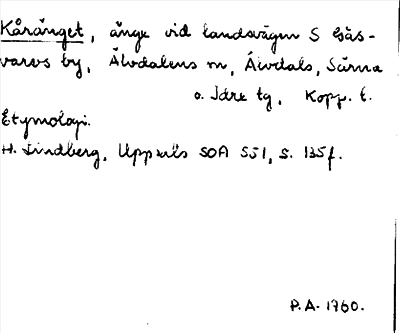 Kåränget, änge vid landsvägen S Gås-
varvs by, Älvdalens sn, Älvdals, Särna
o. Idre tg, Kopp. l.
Etymologi.
H. Lindberg, Uppsats SOA 551, s. 135 f.
P.A. 1760.